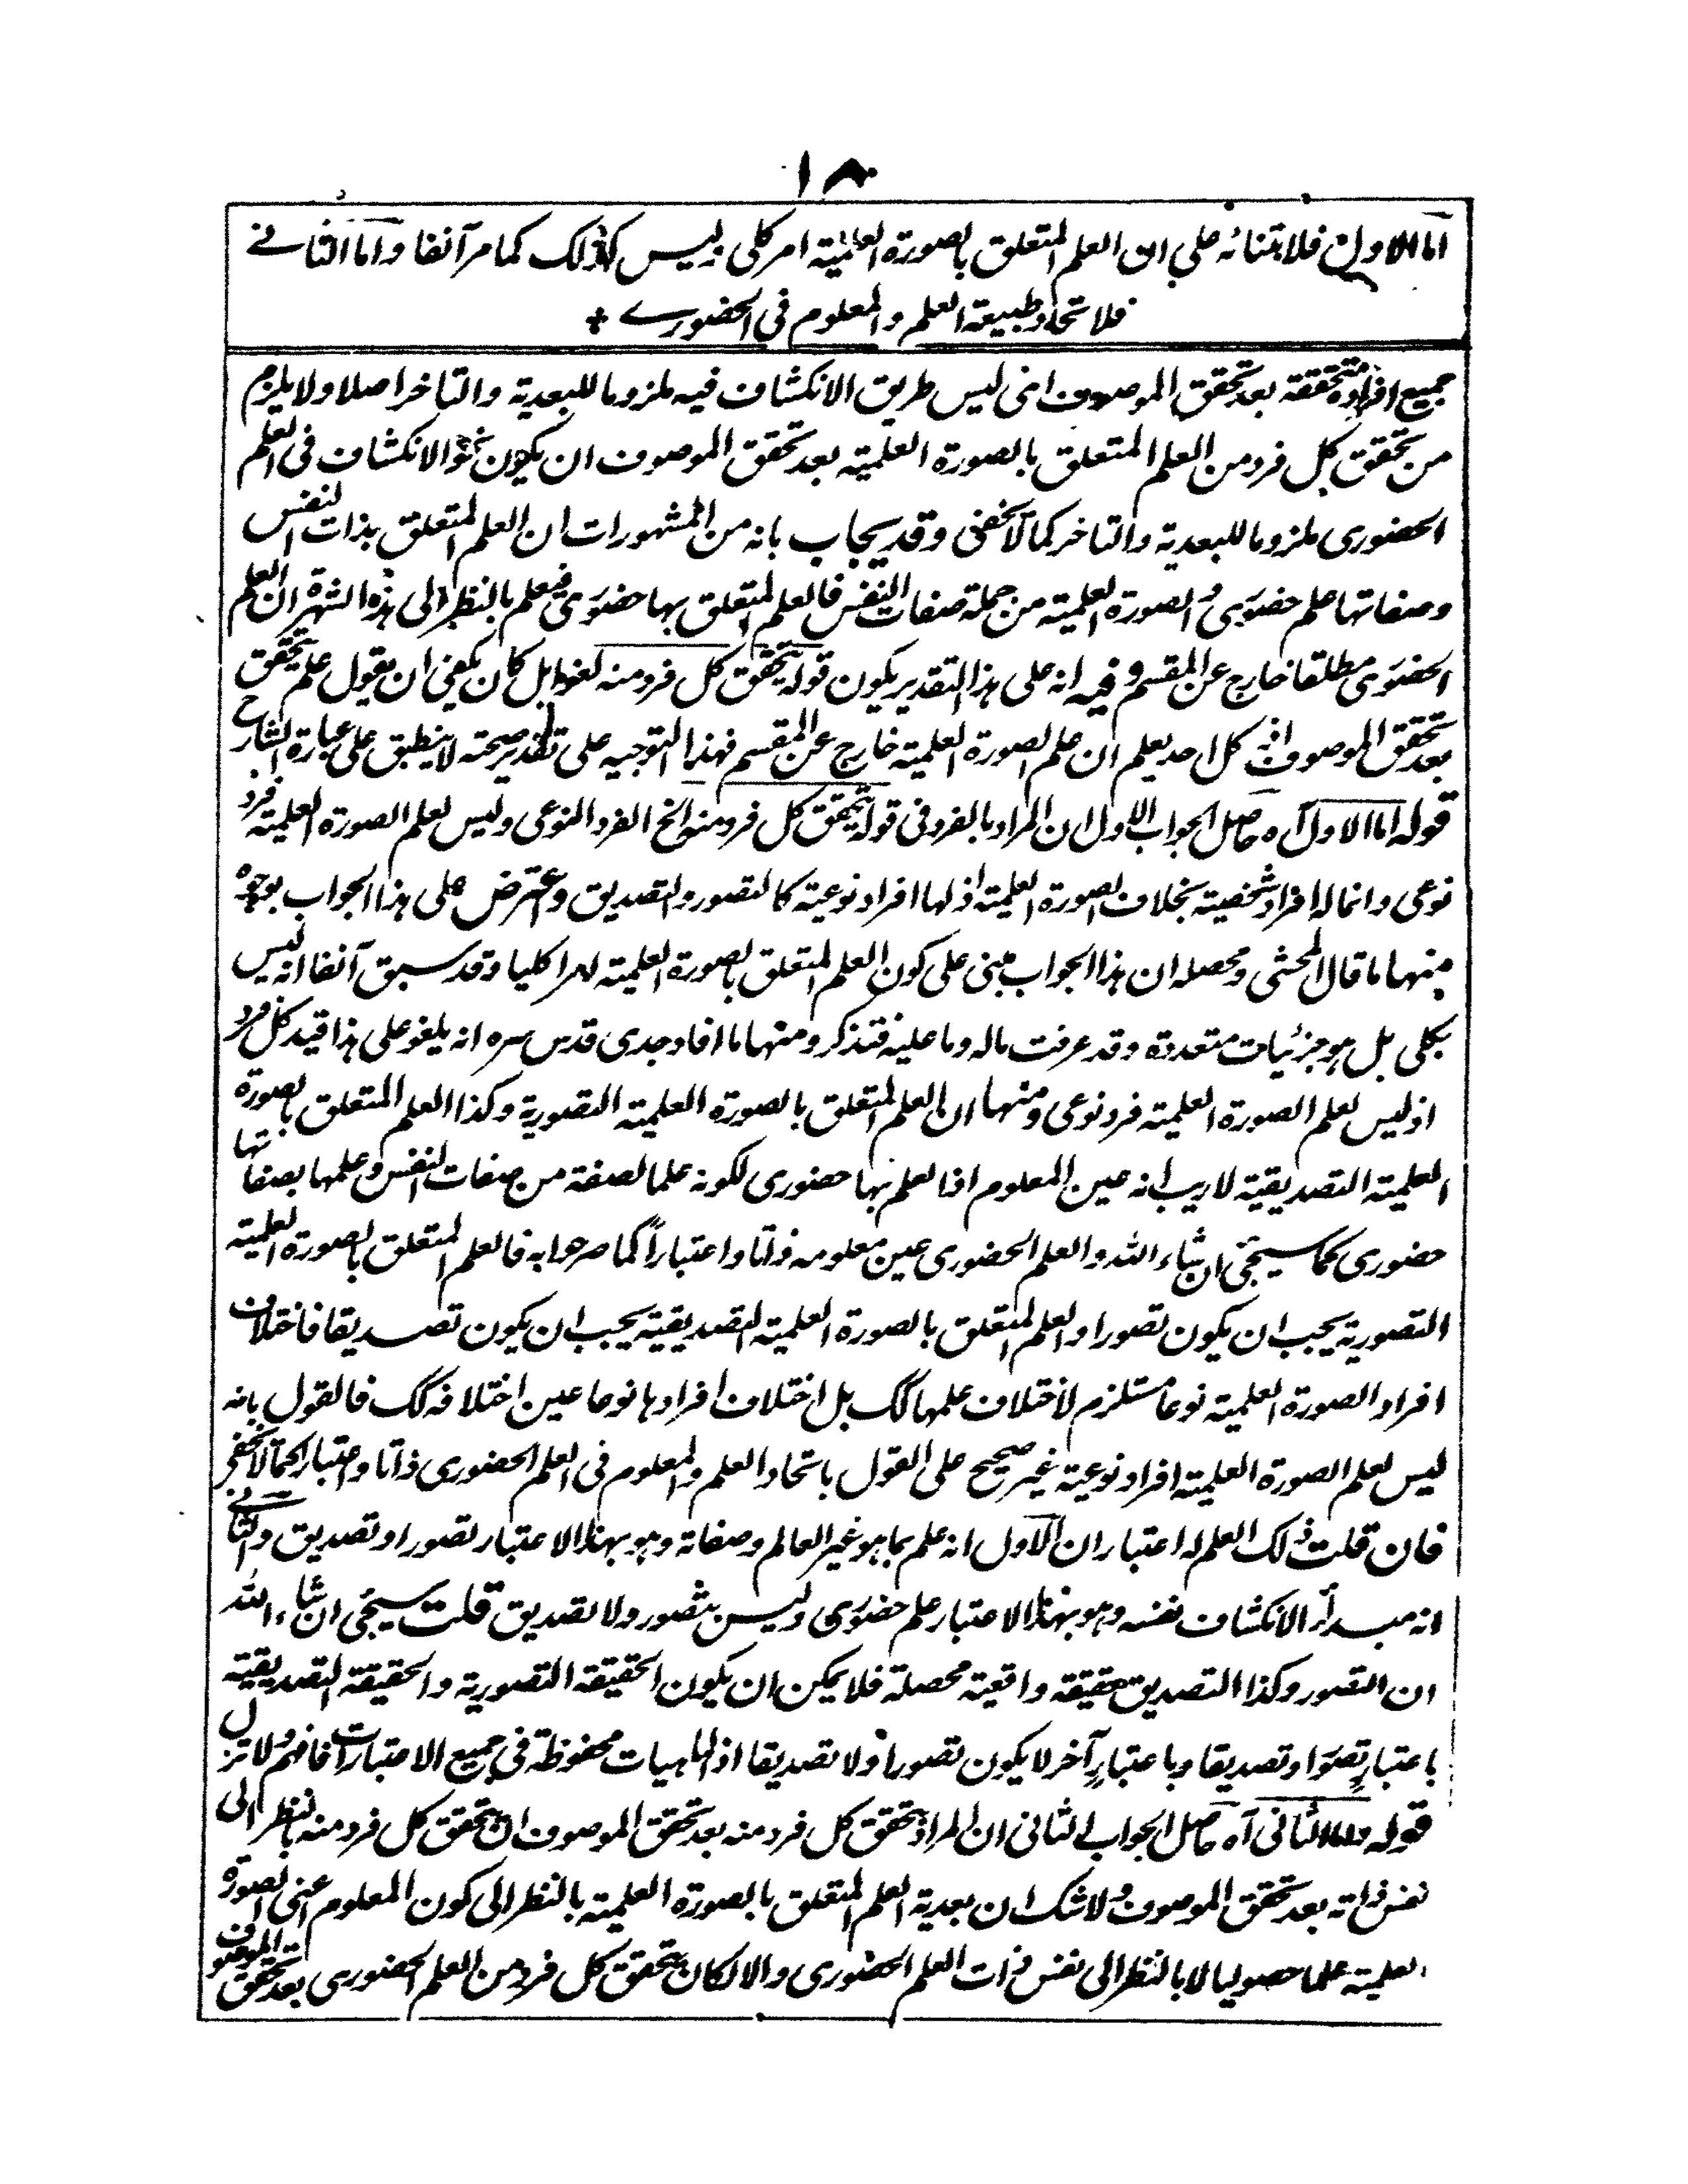 ١٨
اما الاول فلابتنائه على ان العلم المتعلق بالصورة العلمية امر كلى وليس كذلك كما مر آنفا واما الثانے
فلاتحاد طبيعة العلم والمعلوم فى الحضورے +
جميع افراده متحققة بعد تحقق الموصوف اى ليس طريق الانكشاف فيه ملزوما للبعدية والتاخر اصلا ولا يلزم
من تحقق كل فرد من العلم المتعلق بالصورة العلمية بعد تحقق الموصوف ان يكون نحو الانكشاف فى العلم
الحضورى ملزوما للبعدية والتاخر كما لا يخفى وقد يجاب بانه من المشهورات ان العلم المتعلق بذات النفس
وصفاتها علم حضورى والصورة العلمية من جملة صفات النفس فالعلم المتعلق بها حضورى فيعلم بالنظر الى هذه الشهرة ان العلم
الحضورى مطلقا خارج عن المقسم وفيه انه على هذا التقدير يكون قوله تحقق كل فرد منه لغوا بل كان يكفى ان يقول علم تحقق
بعد تحقق الموصوف كل احد يعلم ان علم الصورة العلمية خارج عن المقسم فهذا التوجيه على تقدير صحته لا ينطبق على عبارة الشارح
قوله اما الاول آه حاصل الجواب الاول ان المراد بالفرد فى قوله تحقق كل فرد منه الخ الفرد النوعى وليس لعلم الصورة العلمية فرد
نوعى وانما له افراد شخصية بخلاف الصورة العلمية اذ لها افراد نوعية كالتصور والتصديق واعترض على هذا الجواب بوجوه
منها ما قال المحشى ومحصله ان هذا الجواب مبنى على كون العلم المتعلق بالصورة العلمية امرا كليا وقد سبق آنفا انه ليس
بكلى بل هو جزئيات متعددة وقد عرفت ماله وما عليه فتذكر ومنها ما افاد جدى قدس سره انه يلغو على هذا قيد كل فرد
اذ ليس لعلم الصورة العلمية فرد نوعى ومنها ان العلم المتعلق بالصورة العلمية التصورية وكذا العلم المتعلق بالصورة
العلمية التصديقية لا ريب انه عين المعلوم اذ العلم بها حضورى لكونه علما لصفة من صفات النفس وعلمها بصفاتها
حضورى كما سيجئ ان شاء الله والعلم الحضورى عين معلومه ذاتا واعتباراً كما صرحوا به فالعلم المتعلق بالصورة العلمية
التصورية يجب ان يكون تصورا والعلم المتعلق بالصورة العلمية التصديقية يجب ان يكون تصديقا فاختلاف
افراد الصورة العلمية نوعا مستلزم لاختلاف علمها كك بل اختلاف افرادها نوعا عين اختلافه كك فالقول بانه
ليس لعلم الصورة العلمية افراد نوعية غير صحيح على القول باتحاد العلم والمعلوم فى العلم الحضورى ذاتا واعتبارا كما لا يخفى
فان قلت ذلك العلم له اعتباران الاول انه علم بما هو غير العالم وصفاته وهو بهذا الاعتبار تصور او تصديق والثانے
انه مبدأ الانكشاف نفسه وهو بهذا الاعتبار علم حضورى وليس بتصور ولا تصديق قلت سيجئ ان شاء الله
ان التصور وكذا التصديق حقيقة واقعية محصلة فلا يمكن ان يكون الحقيقة التصورية والحقيقة التصديقية
باعتبار تصورا وتصديقا وباعتبار آخر لا يكون تصورا ولا تصديقا اذ الماهيات محفوظة فى جميع الاعتبارات فافهم ولا تزل
قوله واما الثانى آه حاصل الجواب الثانى ان المراد بتحقق كل فرد منه بعد تحقق الموصوف ان تحقق كل فرد منه بالنظر الى
نفس ذاته بعد تحقق الموصوف ولا شك ان بعدية العلم المتعلق بالصورة العلمية بالنظر الى كون المعلوم اعنى الصورة
العلمية علما حصوليا لا بالنظر الى نفس ذات العلم الحضورى والا لكان تحقق كل فرد من العلم الحضورى بعد تحقق الموصوف